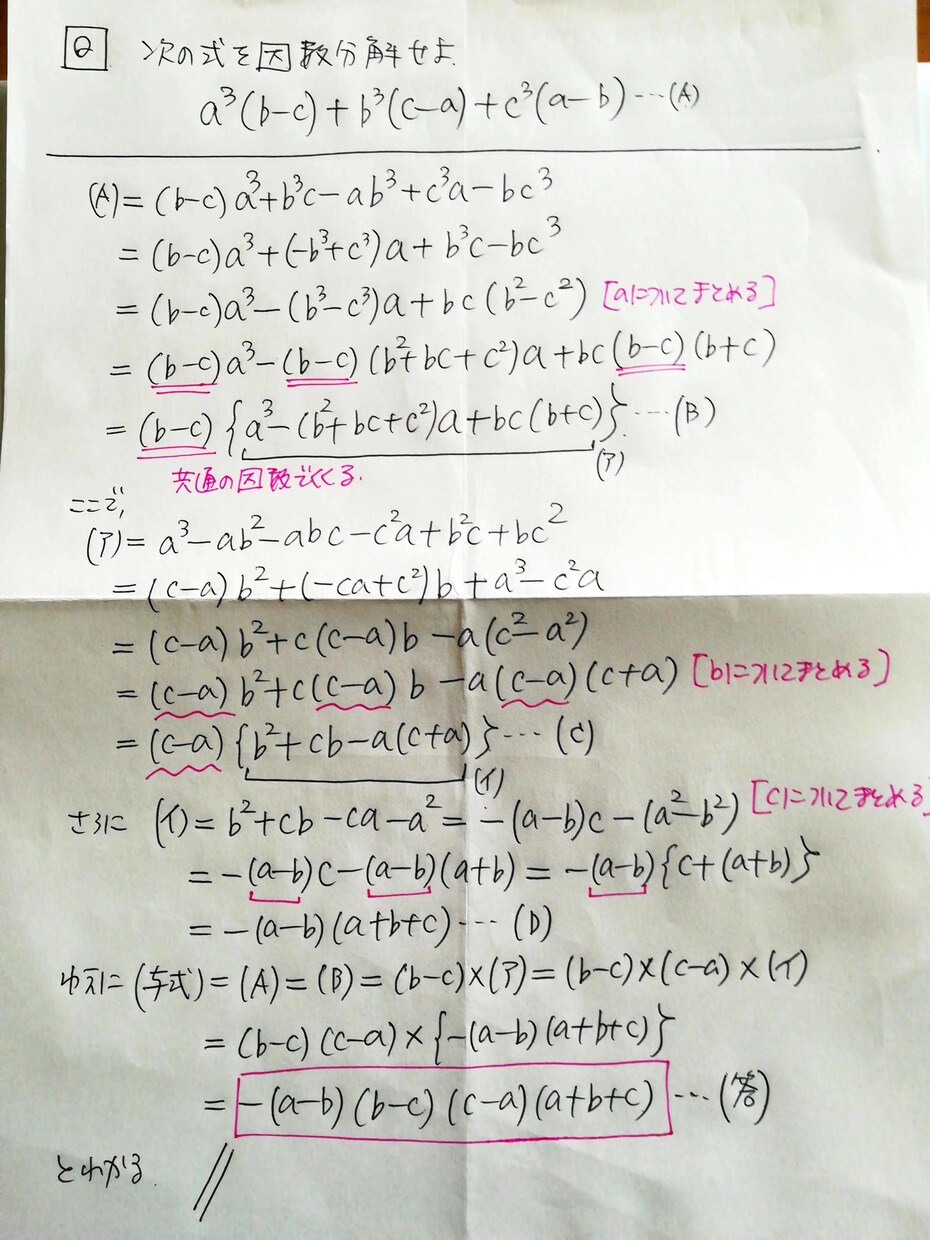 Q 次の式を因数分解せよ.
a³(b-c)+b³(c-a)+c³(a-b)…(A)
(A)=(b-c)a³+b³c-ab³+c³a-bc³
=(b-c)a³+(-b³+c³)a+b³c-bc³
=(b-c)a³-(b³-c³)a+bc(b²-c²) [aについてまとめる]
=(b-c)a³-(b-c)(b²+bc+c²)a+bc(b-c)(b+c)
=(b-c){a³-(b²+bc+c²)a+bc(b+c)}…(B)
(ア)
共通の因数でくくる.
ここで,
(ア)=a³-ab²-abc-c²a+b²c+bc²
=(c-a)b²+(-ca+c²)b+a³-c²a
=(c-a)b²+c(c-a)b-a(c²-a²)
=(c-a)b²+c(c-a)b-a(c-a)(c+a) [bについてまとめる]
=(c-a){b²+cb-a(c+a)}…(C)
(イ)
さらに (イ)=b²+cb-ca-a²=-(a-b)c-(a²-b²) [cについてまとめる]
=-(a-b)c-(a-b)(a+b)=-(a-b){c+(a+b)}
=-(a-b)(a+b+c)…(D)
ゆえに(与式)=(A)=(B)=(b-c)×(ア)=(b-c)×(c-a)×(イ)
=(b-c)(c-a)×{-(a-b)(a+b+c)}
=-(a-b)(b-c)(c-a)(a+b+c)…(答)
とわかる. //